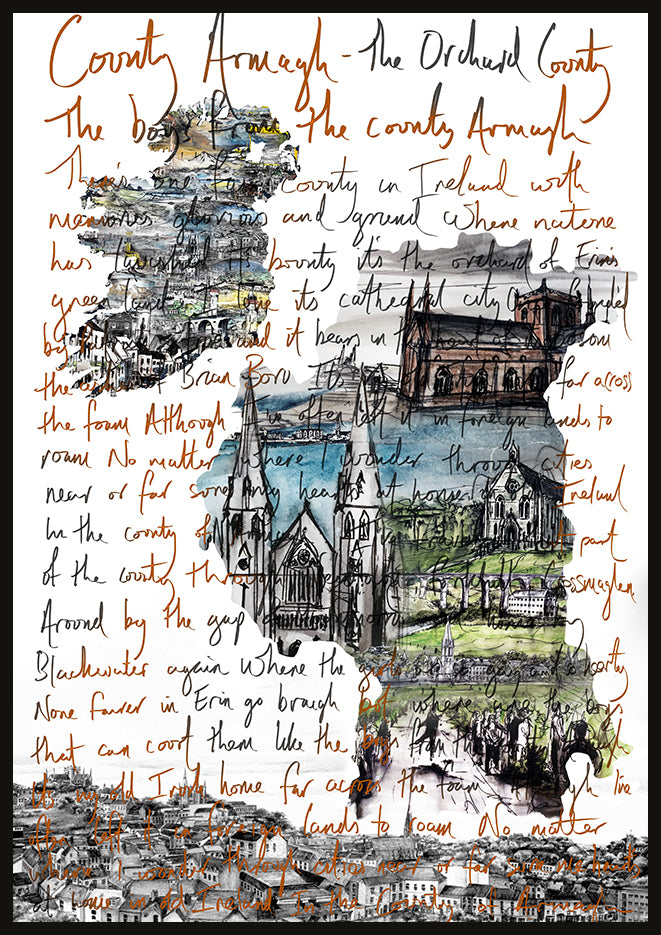 County Armagh - The Orchard County
The boys from the county Armagh
There's one fair county in Ireland with
memories glorious and grand where nature
has lavished its bounty it's the orchard of Erin's
green land I love its cathedral city
by and it bears in
the of Brian Boru It's far across
the foam Although I've often left it in foreign lands to
roam No matter where I wonder through cities
near or far at home Ireland
In the county of part
of the county through Crossmaglen
Around by the gap
Blackwater again Where the and hearty
None fairer in Erin go bragh but where are the boys
that can court them like the boys from the
It's my old Irish home far across the foam I've
often left it in foreign lands to roam No matter
where I wonder through cities near or far
at home in old Ireland In the County of Armagh